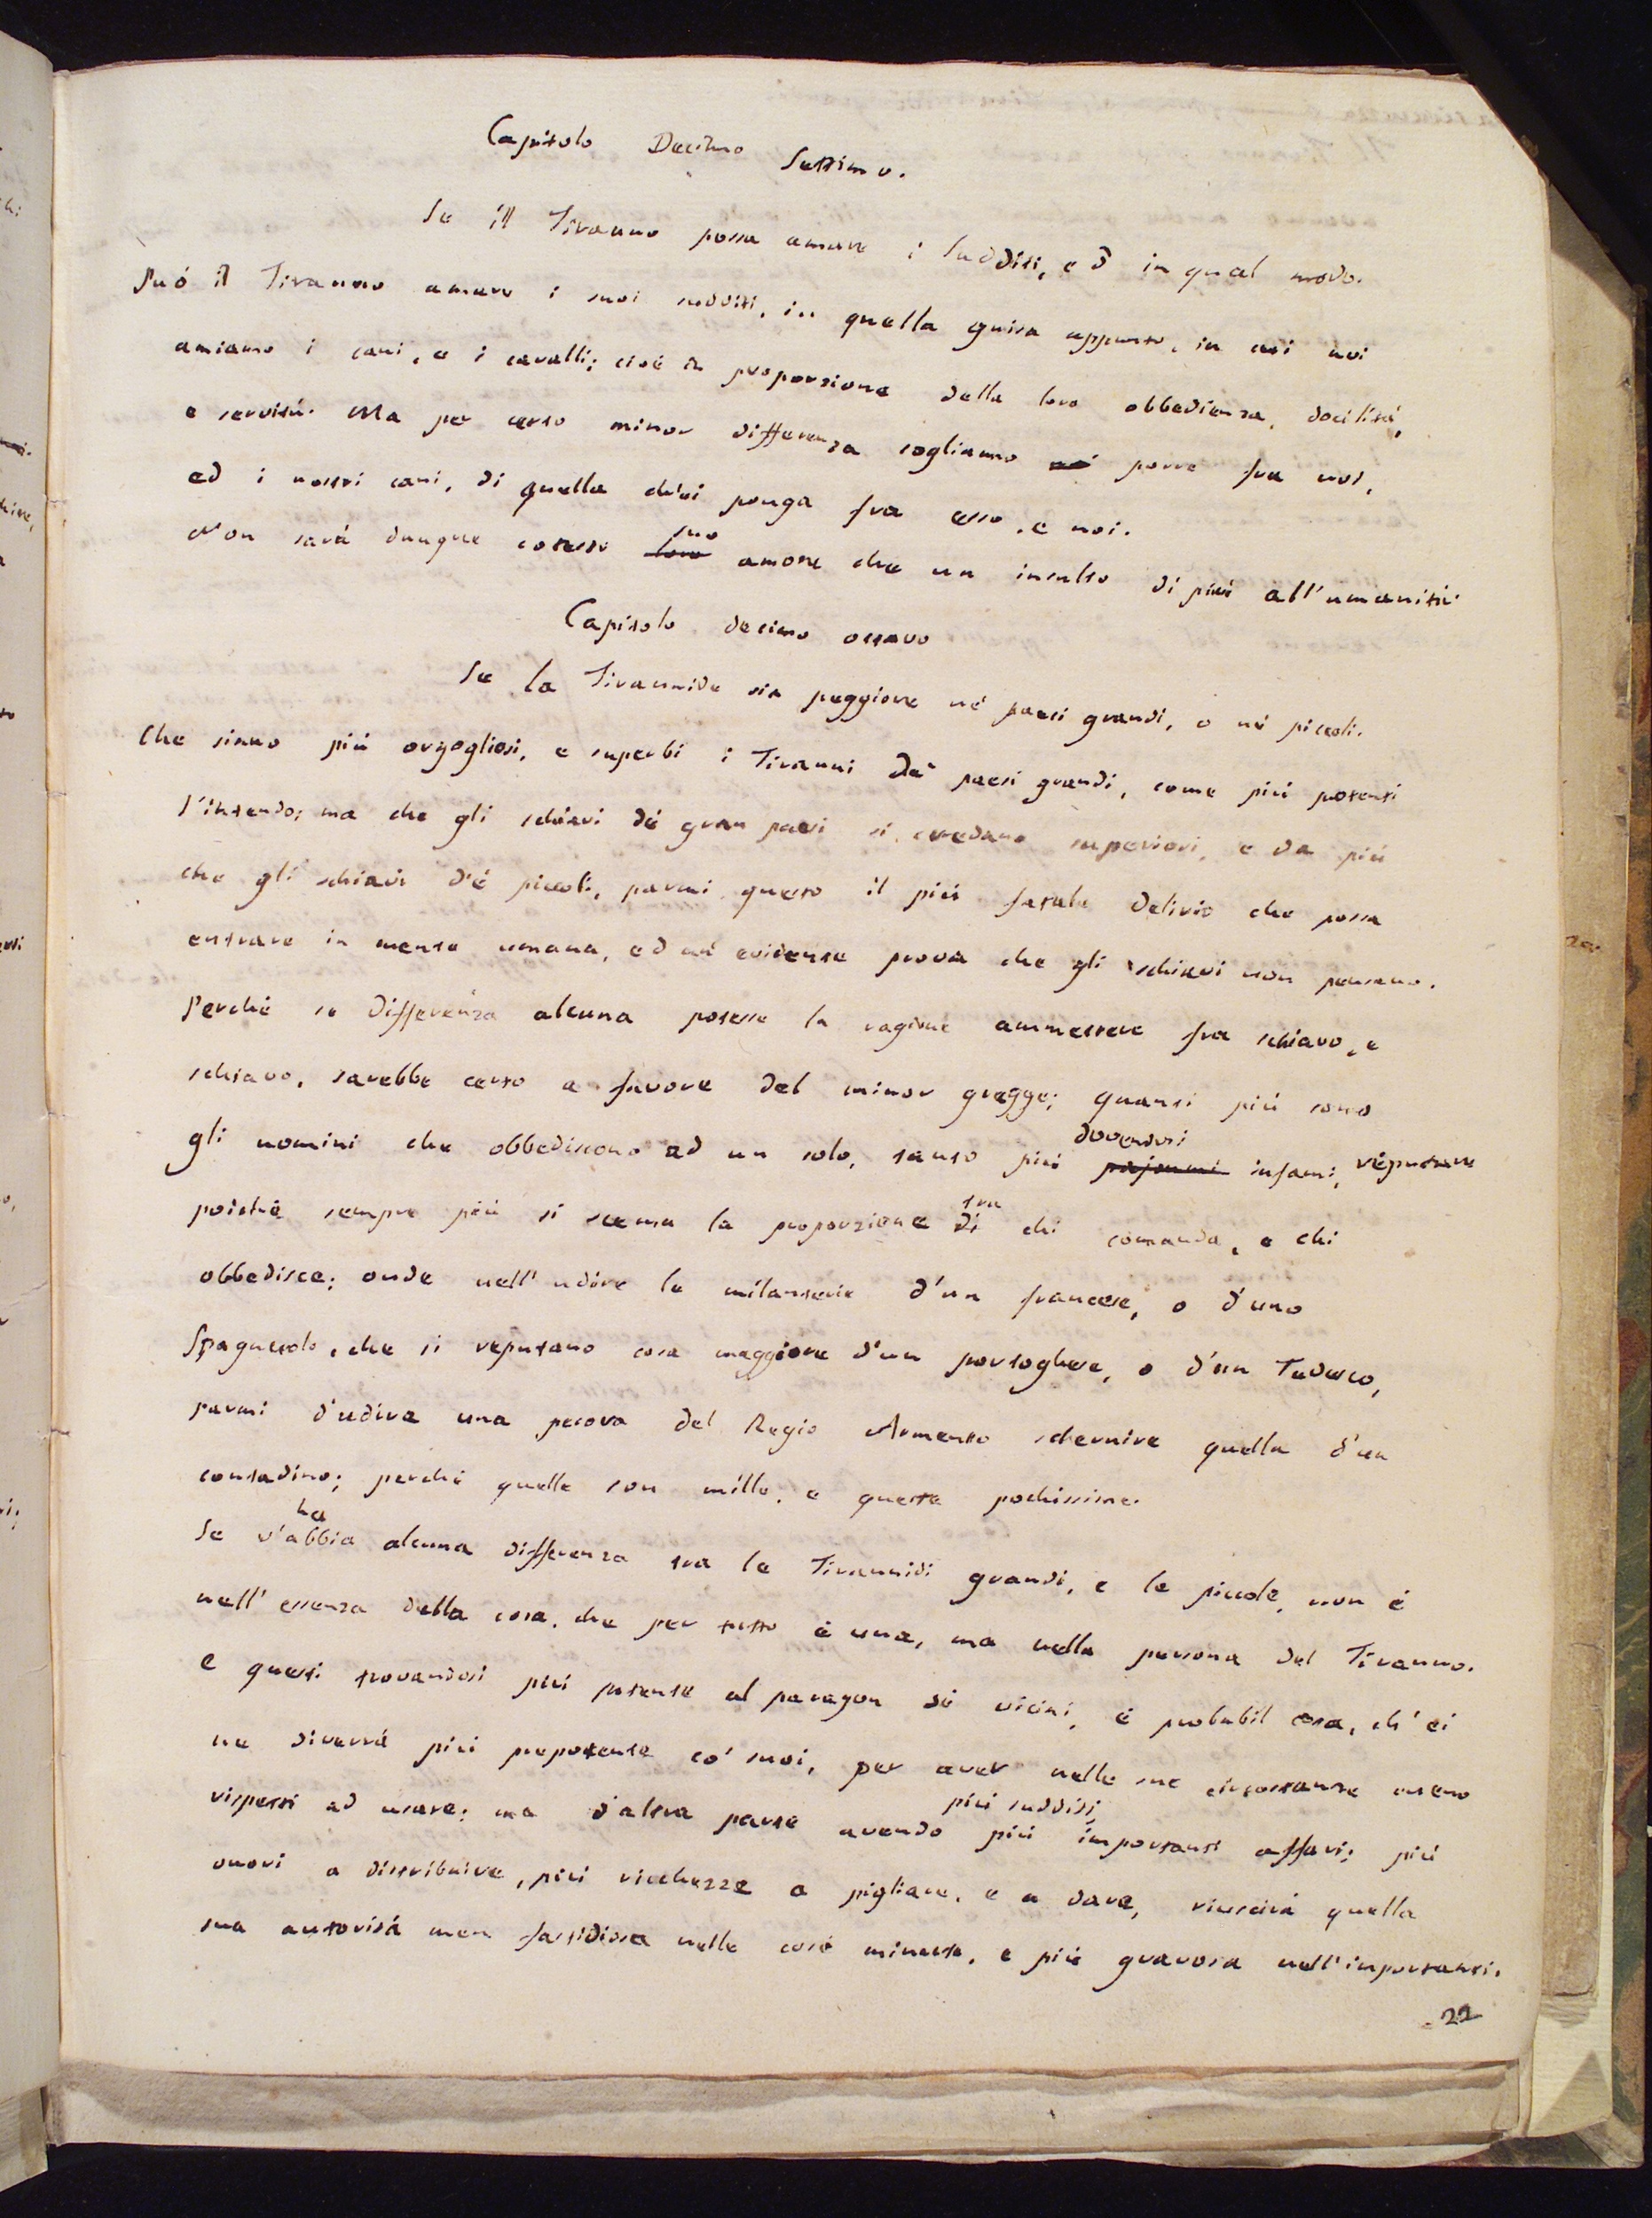 Capitolo Decimo Settimo.
Se il Tiranno possa amare i Sudditi, ed in qual modo.
Può il Tiranno amare i suoi sudditi, in quella guisa appunto, in cui noi
amiamo i cani, e i cavalli; cioè in proporzione della loro obbedienza, docilità,
e servitù. Ma per certo minor differenza sogliamo noi porre fra noi,
ed i nostri cani, di quella ch'ei ponga fra esso, e noi.
Non sarà dunque cotesto loro suo amore che un insulto di più all'umanità.
Capitolo decimo ottavo
Se la Tirannide sia peggiore né paesi grandi, o né piccoli.
Che siano più orgogliosi, e superbi i Tiranni de' paesi grandi, come più potenti
l'intendo; ma che gli schiavi dé gran paesi si credano superiori, e da più
che gli schiavi d'é piccoli, parmi questo il più fatale delirio che possa
entrare in mente umana, ed un' evidente prova che gli schiavi non pensano.
Perché se differenza alcuna potesse la ragione ammettere fra schiavo, e
schiavo, sarebbe certo a favore del minor gregge; quanti più sono
gli uomini che obbediscono ad un solo, tanto più dovendosi infami, reputare
poiché sempre più si scema la proporzione di tra chi comanda, e chi
obbedisce; onde nell'udire le millanterie d'un francese, o d'uno
Spagnuolo, che si reputano cosa maggiore d'un portoghese, o d'un Tedesco,
parmi d'udire una pecora del Regio Armento schernire quella d'un
contadino; perché quelle son mille, e queste pochissime.
Se v'abbia ha alcuna differenza tra le Tirannidi grandi, e le piccole, non é
nell'essenza della cosa, che per tutto é una, ma nella persona del Tiranno.
E questi trovandosi più potente al paragon dé vicini, é probabil cosa, ch'ei
ne diverrà più prepotente co' suoi, per aver nelle sue circostanze meno
rispetti ad usare; ma d'altra parte avendo più sudditi, più importanti affari; più
onori a distribuire, più ricchezze a pigliare, e a dare, riuscirà quella
sua autorità men fastidiosa nelle cose minute, e più gravosa nell'importanti.
22